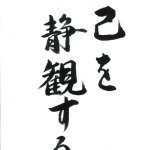 己を
静観する